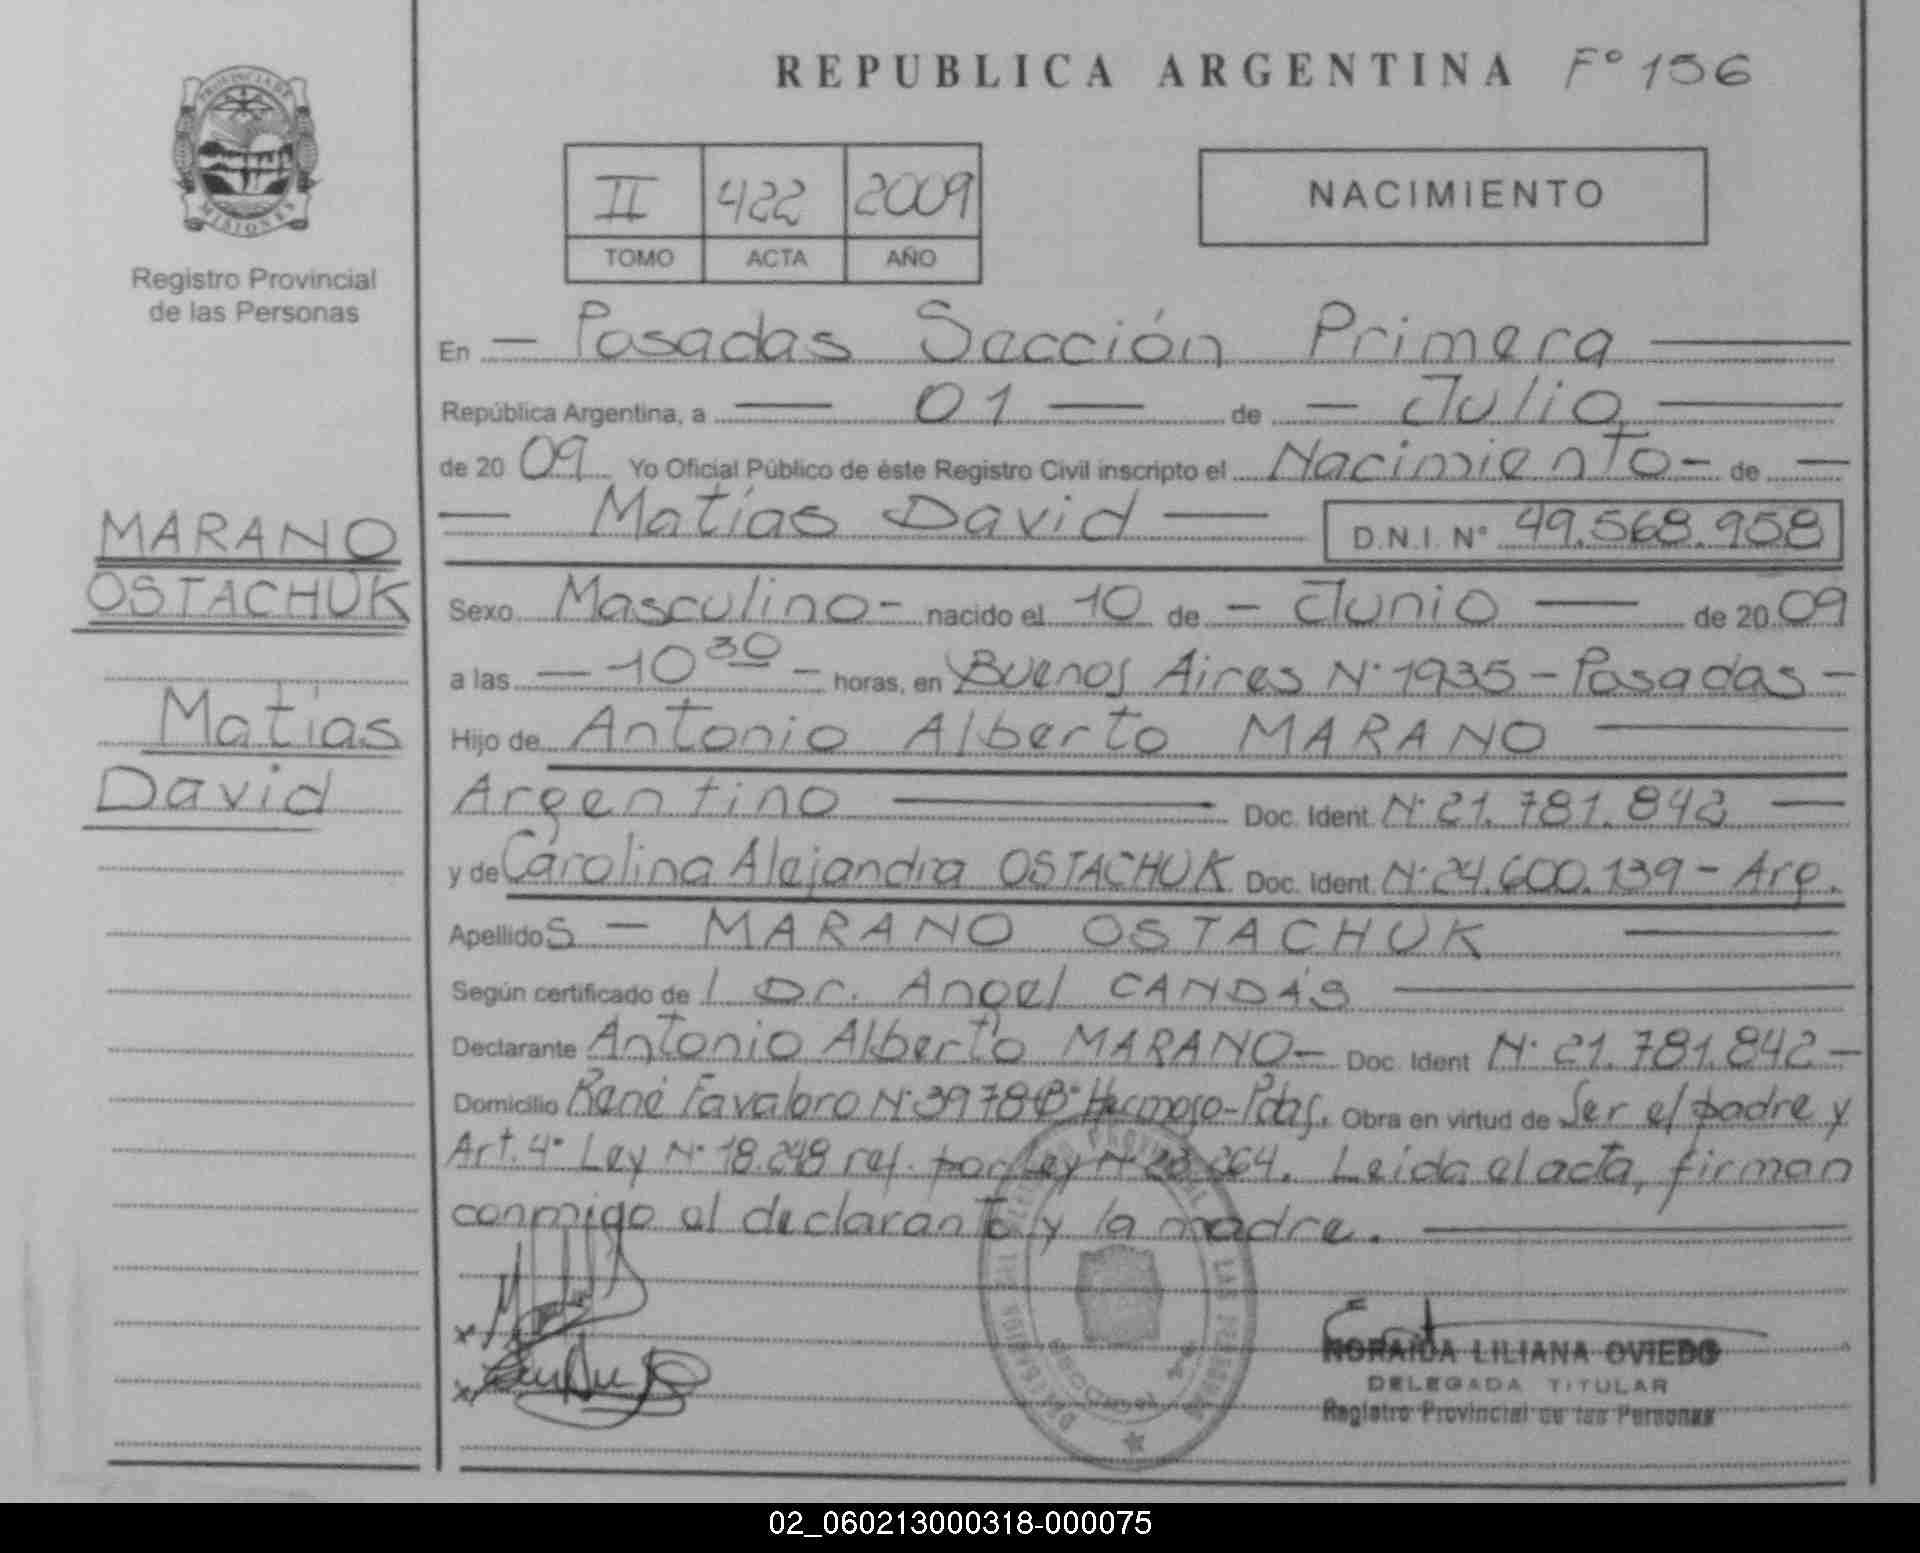 REPUBLICA ARGENTINA Fº 156
PROVINCIA DE
MISIONES
Registro Provincial
de las Personas
II 422 2009
TOMO ACTA AÑO
NACIMIENTO
En — Posadas Sección Primera —
República Argentina, a — 01 — de — Julio —
de 20 09 Yo Oficial Público de éste Registro Civil inscripto el Nacimiento - de —
— Matías David — D.N.I. Nº 49.568.958
MARANO
OSTACHUK
Matías
David
Sexo Masculino - nacido el 10 de — Junio — de 20 09
a las — 10 30 — horas, en Buenos Aires Nº 1935 - Posadas -
Hijo de Antonio Alberto MARANO —
Argentino — Doc. Ident. Nº 21.781.842 —
y de Carolina Alejandra OSTACHUK Doc. Ident. Nº 24.600.139 - Arg.
Apellidos — MARANO OSTACHUK —
Según certificado del Dr. Angel CANDÁS —
Declarante Antonio Alberto MARANO — Doc. Ident Nº 21.781.842 —
Domicilio René Favaloro Nº 3978 Bº Hermoso - Pdas. Obra en virtud de Ser el padre y
Art. 4º Ley Nº 18.248 ref. por Ley Nº 23.264. Leida el acta, firman
conmigo el declarante y la madre. —
NORAIDA LILIANA OVIEDO
DELEGADA TITULAR
Registro Provincial de las Personas
02_060213000318-000075